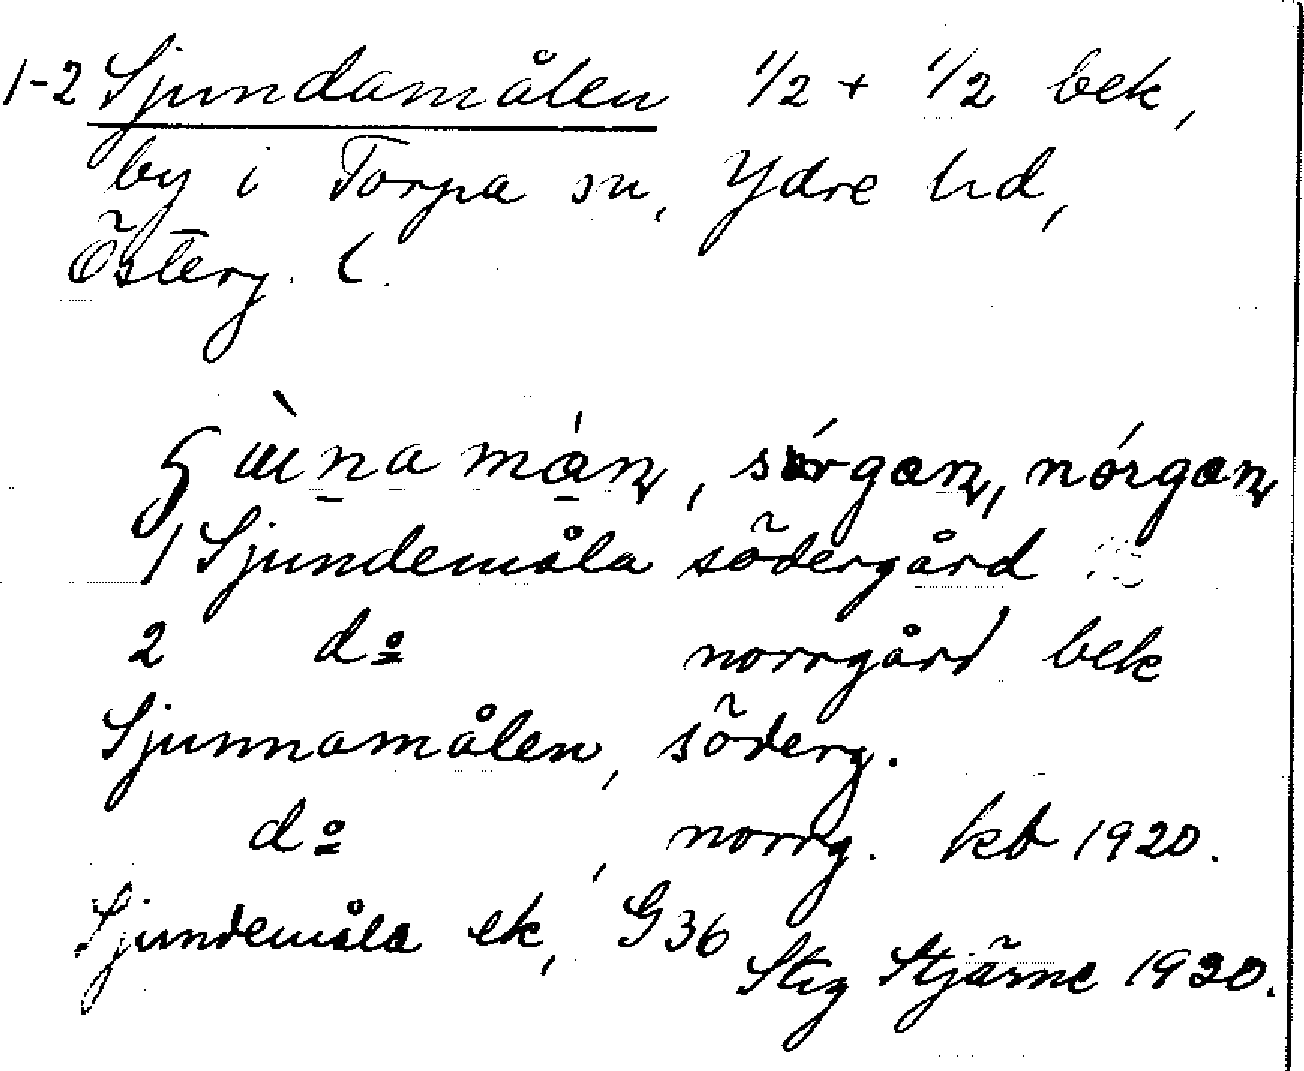 1-2 Sjundamålen 1/2 + 1/2 bek,
by i Torpa sn, Ydre hd,
Österg. L.
mån, sörgan, nórgan
1 Sjundemåla södergård
2 do norrgård bek
Sjunnamålen, söderg.
do, norrg. kb 1920.
Sjundemåla ek, G36
Stig Stjärne 1920.